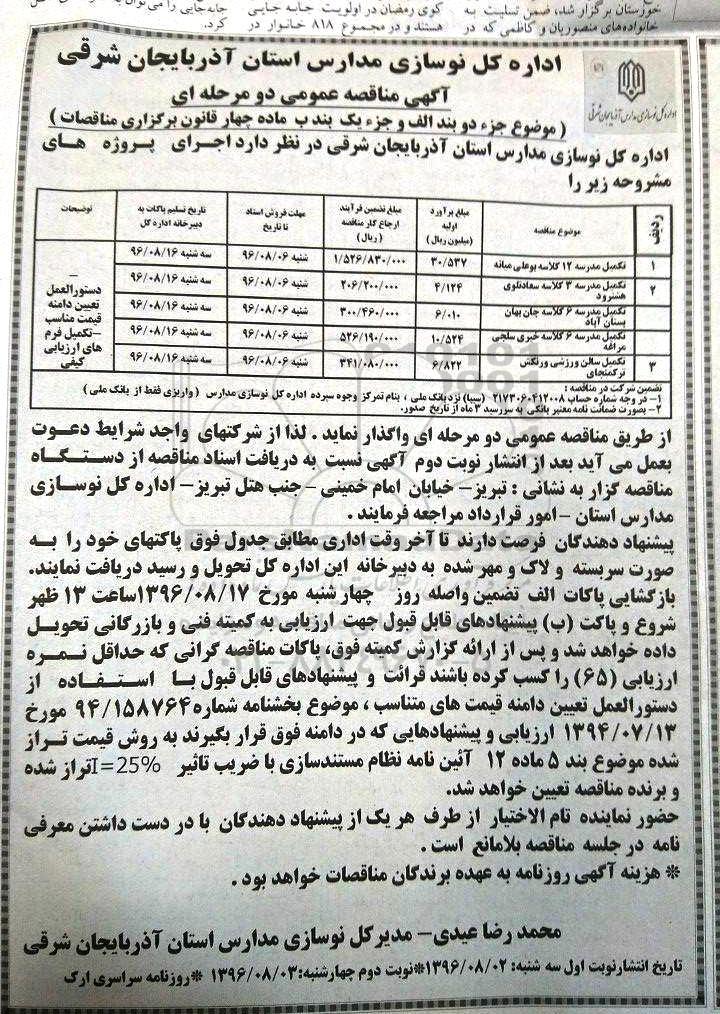 خوزستان برگزار شد، ضمن تسلیت به
خانواده‌های منصوریان و کاظمی که در
کوی رمضان در اولویت جابه جایی
هستند و در مجموع ۸۱۸ خانوار در
کرد.
اداره کل نوسازی مدارس آذربایجان شرقی
اداره کل نوسازی مدارس استان آذربایجان شرقی
آگهی مناقصه عمومی دو مرحله ای
( موضوع جزء دو بند الف و جزء یک بند ب ماده چهار قانون برگزاری مناقصات )
اداره کل نوسازی مدارس استان آذربایجان شرقی در نظر دارد اجرای پروژه های
مشروحه زیر را
ردیف | موضوع مناقصه | مبلغ برآورد اولیه (میلیون ریال) | مبلغ تضمین فرآیند ارجاع کار مناقصه ( ریال) | مهلت فروش اسناد تا تاریخ | تاریخ تسلیم پاکات به دبیرخانه اداره کل | توضیحات
۱ | تکمیل مدرسه ۱۲ کلاسه بوعلی میانه | ۳۰/۵۳۷ | ۱/۵۲۶/۸۳۰/۰۰۰ | شنبه ۹۶/۰۸/۰۶ | سه شنبه ۹۶/۰۸/۱۶
۲ | تکمیل مدرسه ۳ کلاسه سعادتلوی هشترود | ۴/۱۲۴ | ۲۰۶/۲۰۰/۰۰۰ | شنبه ۹۶/۰۸/۰۶ | سه شنبه ۹۶/۰۸/۱۶
تکمیل مدرسه ۶ کلاسه جان بهان بستان آباد | ۶/۰۱۰ | ۳۰۰/۴۶۰/۰۰۰ | شنبه ۹۶/۰۸/۰۶ | سه شنبه ۹۶/۰۸/۱۶
تکمیل مدرسه ۶ کلاسه خیری سلجی مراغه | ۱۰/۵۲۴ | ۵۲۶/۱۹۰/۰۰۰ | شنبه ۹۶/۰۸/۰۶ | سه شنبه ۹۶/۰۸/۱۶
۳ | تکمیل سالن ورزشی ورنکش ترکمنچای | ۶/۸۲۲ | ۳۴۱/۰۸۰/۰۰۰ | شنبه ۹۶/۰۸/۰۶ | سه شنبه ۹۶/۰۸/۱۶
– دستورالعمل
تعیین دامنه
قیمت مناسب
–تکمیل فرم
های ارزیابی
کیفی
تضمین شرکت در مناقصه :
۱– در وجه شماره حساب ۲۱۷۳۰۶۰۴۱۲۰۰۸ (سیبا) نزد بانک ملی ، بنام تمرکز وجوه سپرده اداره کل نوسازی مدارس ( واریزی فقط از بانک ملی )
۲– بصورت ضمانت نامه معتبر بانکی به سررسید ۳ ماه از تاریخ صدور.
از طریق مناقصه عمومی دو مرحله ای واگذار نماید . لذا از شرکتهای واجد شرایط دعوت
بعمل می آید بعد از انتشار نوبت دوم آگهی نسبت به دریافت اسناد مناقصه از دستگاه
مناقصه گزار به نشانی : تبریز– خیابان امام خمینی – جنب هتل تبریز– اداره کل نوسازی
مدارس استان – امور قرارداد مراجعه فرمایند .
پیشنهاد دهندگان فرصت دارند تا آخر وقت اداری مطابق جدول فوق پاکتهای خود را به
صورت سربسته و لاک و مهر شده به دبیرخانه این اداره کل تحویل و رسید دریافت نمایند.
بازگشایی پاکات الف تضمین واصله روز چهار شنبه مورخ ۱۳۹۶/۰۸/۱۷ساعت ۱۳ ظهر
شروع و پاکت (ب) پیشنهادهای قابل قبول جهت ارزیابی به کمیته فنی و بازرگانی تحویل
داده خواهد شد و پس از ارائه گزارش کمیته فوق، پاکات مناقصه گرانی که حداقل نمره
ارزیابی (۶۵) را کسب کرده باشند قرائت و پیشنهادهای قابل قبول با استفاده از
دستورالعمل تعیین دامنه قیمت های متناسب ، موضوع بخشنامه شماره ۹۴/۱۵۸۷۶۴ مورخ
۱۳۹۴/۰۷/۱۳ ارزیابی و پیشنهادهایی که در دامنه فوق قرار بگیرند به روش قیمت تراز
شده موضوع بند ۵ ماده ۱۲ آئین نامه نظام مستندسازی با ضریب تاثیر I=25% تراز شده
و برنده مناقصه تعیین خواهد شد.
حضور نماینده تام الاختیار از طرف هر یک از پیشنهاد دهندگان با در دست داشتن معرفی
نامه در جلسه مناقصه بلامانع است .
* هزینه آگهی روزنامه به عهده برندگان مناقصات خواهد بود .
محمد رضا عیدی– مدیرکل نوسازی مدارس استان آذربایجان شرقی
تاریخ انتشارنوبت اول سه شنبه: ۱۳۹۶/۰۸/۰۲*نوبت دوم چهارشنبه:۱۳۹۶/۰۸/۰۳ *روزنامه سراسری ارک